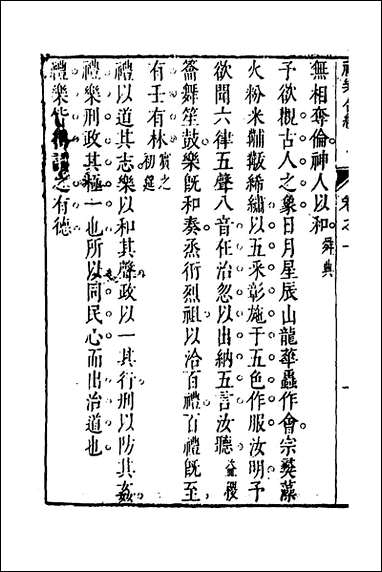 無相奪倫神人以和 舜典
予欲觀古人之象日月星辰山龍華蟲作會宗彝藻
火粉米黼黻絺繡以五釆彰施于五色作服汝明予
欲聞六律五聲八音在治忽以出納五言汝聽 益稷
籥舞笙鼓樂旣和奏烝衎烈祖以洽百禮百禮旣至
有壬有林 賓之初筵
禮以道其志樂以和其聲政以一其行刑以防其姦
禮樂刑政其極一也所以同民心而出治道也
禮樂皆得謂之有德